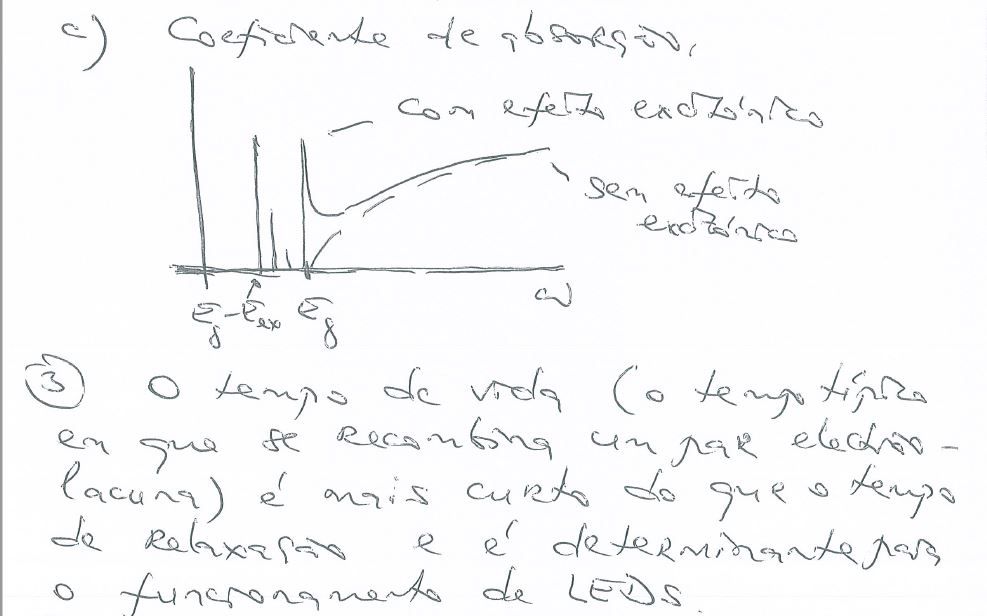 c) Coeficiente de absorção,
com efeito excitónico
sem efeito
excitónico
Eg-Eex Eg ω
③ O tempo de vida (o tempo típico
em que se recombina um par electrão-
lacuna) é mais curto do que o tempo
de relaxação e é determinante para
o funcionamento de LEDs.